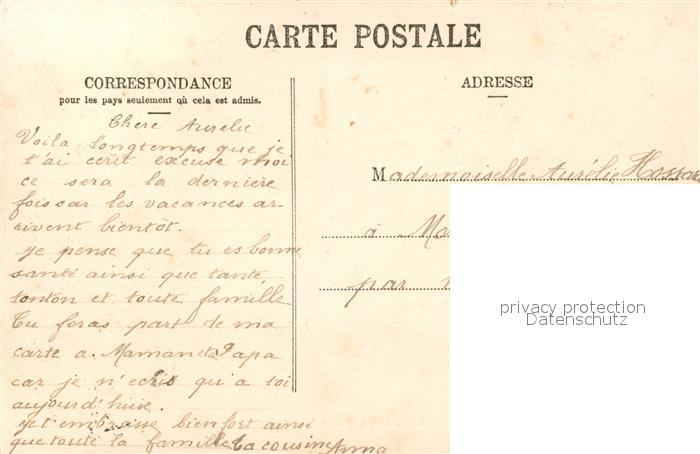 CARTE POSTALE
CORRESPONDANCE
pour les pays seulement où cela est admis.
ADRESSE
Chere Aurelie
Voila longtemps que je
t'ai ecrit excuse moi
ce sera la derniere
fois car les vacances ar-
rivent bientôt.
je pense que tu es bonne
santé ainsi que tante
tonton et toute famille
Tu feras part de ma
carte a Maman et Papa
car je n'ecris qu'a toi
aujourd'hui.
je t'embrasse bien fort ainsi
que toute la famille ta cousine Anna
Mademoiselle Aurélie
à
par
privacy protection
Datenschutz